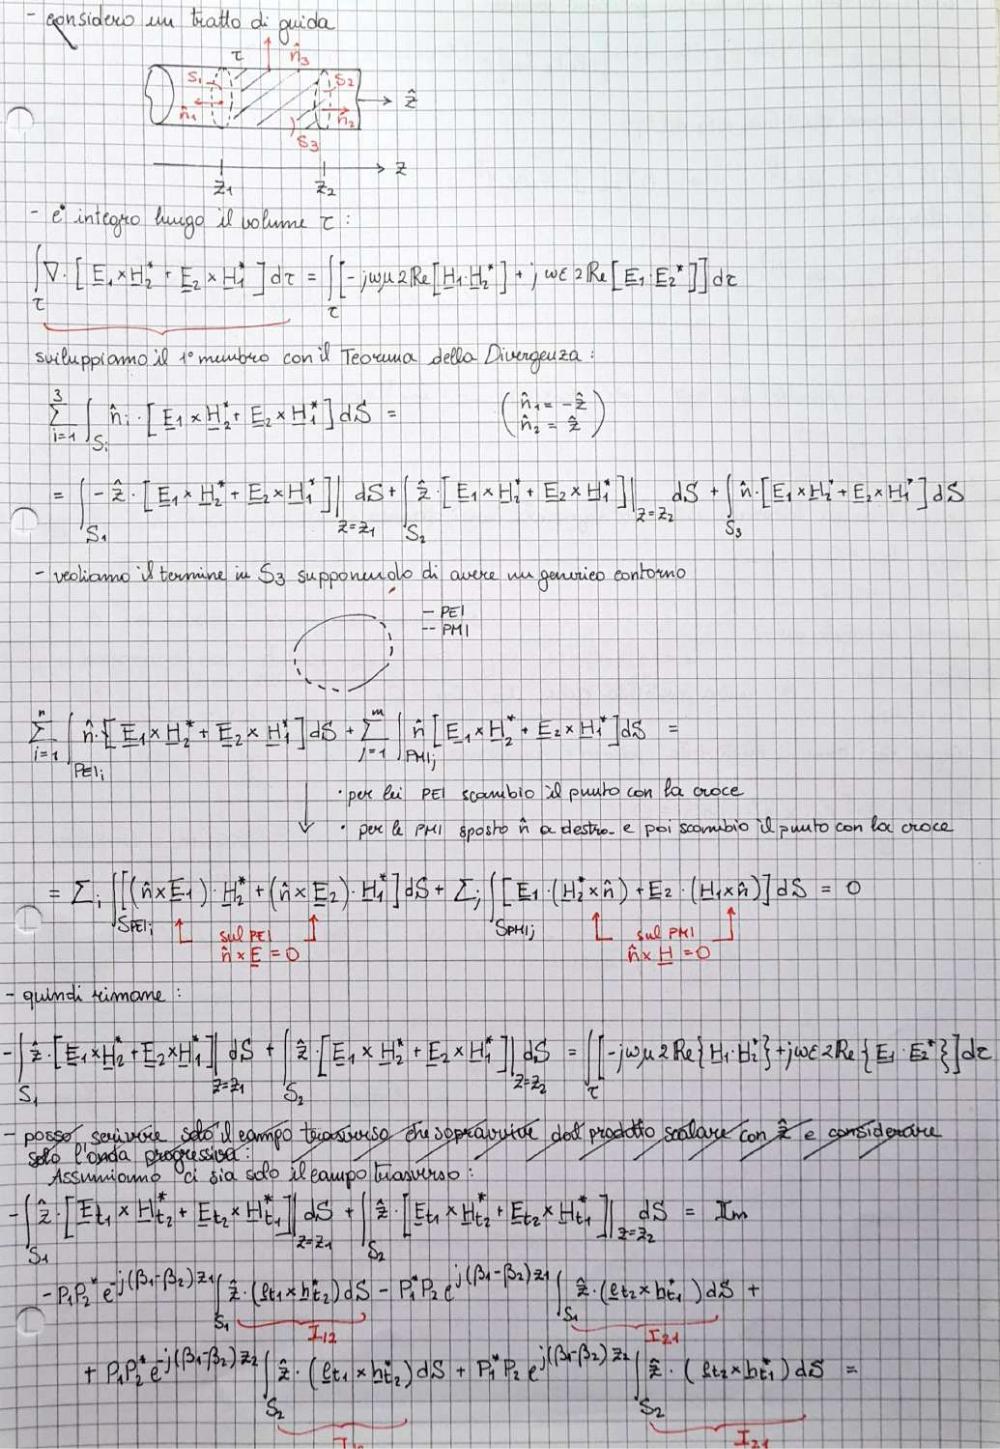 - considero un tratto di guida
τ n̂₃
S₁ S₂
n̂₁ n̂₂ ẑ
S₃
z
z₁ z₂
- e integro lungo il volume τ :
∫_τ ∇·[E₁×H₂* + E₂×H₁*]dτ = ∫_τ [-jωμ2Re[H₁·H₂*] + jωε2Re[E₁·E₂*]]dτ
sviluppiamo il 1° membro con il Teorema della Divergenza :
Σ_{i=1}^{3} ∫_{Sᵢ} n̂ᵢ·[E₁×H₂* + E₂×H₁*]dS = (n̂₁ = -ẑ n̂₂ = ẑ)
= ∫_{S₁} -ẑ·[E₁×H₂* + E₂×H₁*]|_{z=z₁} dS + ∫_{S₂} ẑ·[E₁×H₂* + E₂×H₁*]|_{z=z₂} dS + ∫_{S₃} n̂·[E₁×H₂* + E₂×H₁*]dS
- vediamo il termine in S₃ supponendo di avere un generico contorno
— PEI
-- PMI
Σ_{i=1}^{n} ∫_{PEIᵢ} n̂·[E₁×H₂* + E₂×H₁*]dS + Σ_{j=1}^{m} ∫_{PMIⱼ} n̂[E₁×H₂* + E₂×H₁*]dS =
· per lei PEI scambio il punto con la croce
· per le PMI sposto n̂ a destra e poi scambio il punto con la croce
= Σᵢ ∫_{SPEIᵢ} [(n̂×E₁)·H₂* + (n̂×E₂)·H₁*]dS + Σⱼ ∫_{SPMIⱼ} [E₁·(H₂*×n̂) + E₂·(H₁×n̂)]dS = 0
sul PEI sul PMI
n̂×E = 0 n̂×H = 0
- quindi rimane :
-∫_{S₁} ẑ·[E₁×H₂* + E₂×H₁*]|_{z=z₁} dS + ∫_{S₂} ẑ·[E₁×H₂* + E₂×H₁*]|_{z=z₂} dS = ∫_τ [-jωμ2Re{H₁·H₂*} + jωε2Re{E₁·E₂*}]dτ
- posso scrivere solo il campo trasverso che sopravvive dal prodotto scalare con ẑ e considerare
solo l'onda progressiva :
Assumiamo ci sia solo il campo trasverso :
-∫_{S₁} ẑ·[Et₁×Ht₂* + Et₂×Ht₁*]|_{z=z₁} dS + ∫_{S₂} ẑ·[Et₁×Ht₂* + Et₂×Ht₁*]|_{z=z₂} dS = Im
-P₁P₂* e^{-j(β₁-β₂)z₁} ∫_{S₁} ẑ·(et₁×ht₂*)dS - P₁*P₂ e^{j(β₁-β₂)z₁} ∫_{S₁} ẑ·(et₂×ht₁*)dS +
I₁₂ I₂₁
+ P₁P₂* e^{-j(β₁-β₂)z₂} ∫_{S₂} ẑ·(et₁×ht₂*)dS + P₁*P₂ e^{j(β₁-β₂)z₂} ∫_{S₂} ẑ·(et₂×ht₁*)dS =
I₂₁